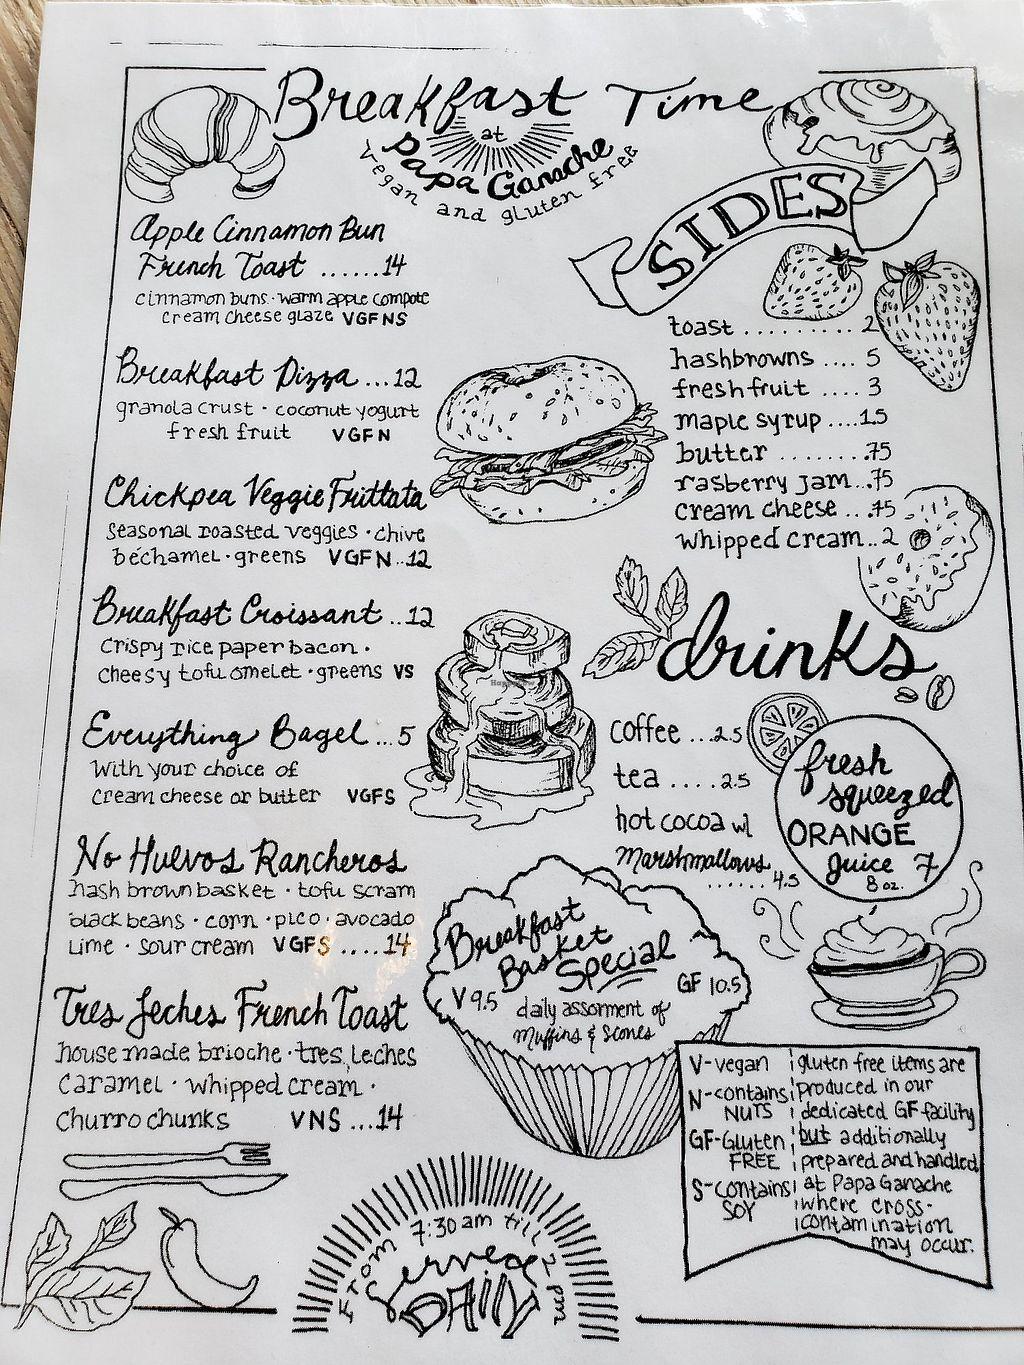 Breakfast Time
at
Papa Ganache
vegan and gluten free
Apple Cinnamon Bun
French Toast ......14
cinnamon buns · warm apple compote
cream cheese glaze VGFNS
Breakfast Pizza ...12
granola crust · coconut yogurt
fresh fruit VGFN
Chickpea Veggie Frittata
seasonal roasted veggies · chive
béchamel · greens VGFN..12
Breakfast Croissant ..12
crispy rice paper bacon ·
cheesy tofu omelet · greens VS
Everything Bagel ...5
with your choice of
cream cheese or butter VGFS
No Huevos Rancheros
hash brown basket · tofu scram
black beans · corn · pico · avocado
lime · sour cream VGFS ....14
Tres Leches French Toast
house made brioche · tres leches
caramel · whipped cream ·
churro chunks VNS ...14
SIDES
toast .......... 2
hashbrowns .... 5
fresh fruit .... 3
maple syrup ....1.5
butter ........ .75
rasberry jam...75
cream cheese ...75
whipped cream..2
drinks
coffee ...2.5
tea ....2.5
hot cocoa w/
marshmallows
......4.5
fresh
squeezed
ORANGE
Juice 7
8 oz.
Breakfast
Basket
Special
V 9.5 GF 10.5
daily assorment of
muffins & scones
V-vegan
N-contains
NUTS
GF-Gluten
FREE
S-contains
SOY
gluten free items are
produced in our
dedicated GF facility
but additionally
prepared and handled
at Papa Ganache
where cross-
contamination
may occur.
From 7:30 am till 2 pm
Served
DAILY